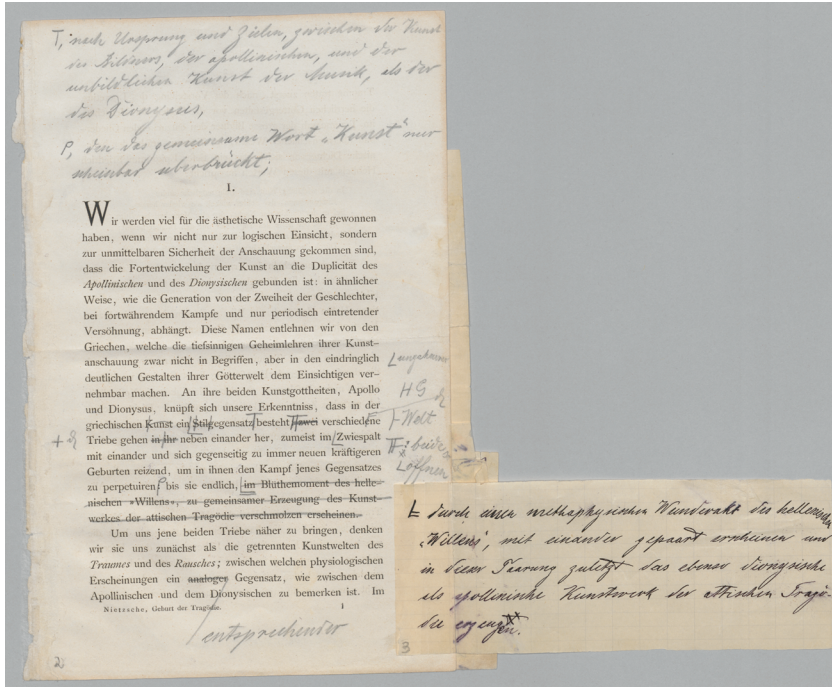 T, nach Ursprung und Zielen, zwischen der Kunst
des Bildners, der apollinischen, und der
unbildlichen Kunst der Musik, als der
des Dionysus,
P, den das gemeinsame Wort „Kunst" nur
scheinbar überbrückt;
1.
Wir werden viel für die ästhetische Wissenschaft gewonnen
haben, wenn wir nicht nur zur logischen Einsicht, sondern
zur unmittelbaren Sicherheit der Anschauung gekommen sind,
dass die Fortentwickelung der Kunst an die Duplicität des
Apollinischen und des Dionysischen gebunden ist: in ähnlicher
Weise, wie die Generation von der Zweiheit der Geschlechter,
bei fortwährendem Kampfe und nur periodisch eintretender
Versöhnung, abhängt. Diese Namen entlehnen wir von den
Griechen, welche die tiefsinnigen Geheimlehren ihrer Kunst-
anschauung zwar nicht in Begriffen, aber in den eindringlich
deutlichen Gestalten ihrer Götterwelt dem Einsichtigen ver-
nehmbar machen. An ihre beiden Kunstgottheiten, Apollo
und Dionysus, knüpft sich unsere Erkenntniss, dass in der
griechischen Kunst ein Stilgegensatz besteht: zwei verschiedene
Triebe gehen in ihr neben einander her, zumeist im Zwiespalt
mit einander und sich gegenseitig zu immer neuen kräftigeren
Geburten reizend, um in ihnen den Kampf jenes Gegensatzes
zu perpetuiren, bis sie endlich, im Blüthemoment des helle-
nischen »Willens«, zu gemeinsamer Erzeugung des Kunst-
werkes der attischen Tragödie verschmolzen erscheinen.
Um uns jene beiden Triebe näher zu bringen, denken
wir sie uns zunächst als die getrennten Kunstwelten des
Traumes und des Rausches; zwischen welchen physiologischen
Erscheinungen ein analoger Gegensatz, wie zwischen dem
Apollinischen und dem Dionysischen zu bemerken ist. Im
Nietzsche, Geburt der Tragödie. 1
entsprechender
2
ungeheurer
HG
Welt
: beide so
offnen
durch einen methaphysischen Wunderakt des hellenischen
„Willens', mit einander gepaart erscheinen und
in dieser Paarung zuletzt das ebenso dionysische
als apollinische Kunstwerk der attischen Tragö-
die erzeugen.
3